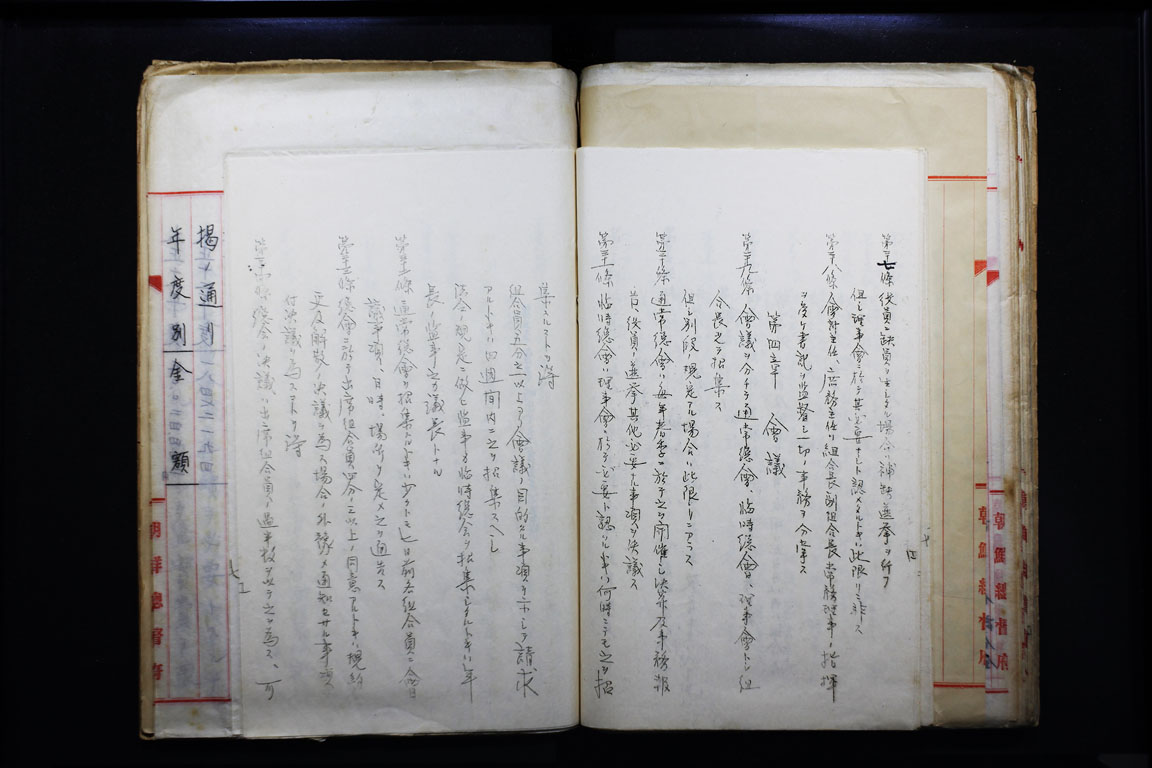 第二十七條 役員ニ缺員ヲ生シタル場合ハ補缺選擧ヲ行フ
但シ理事會ニ於テ其必要ナシト認メタルトキハ此限リニ非ス
第二十八條 會計主任、庶務主任ハ組合長副組合長常務理事ノ指揮
ヲ受ケ書記ヲ監督シ一切ノ事務ヲ分掌ス
第四章 會議
第二十九條 會議ヲ分チテ通常總會、臨時總會、理事會トシ組
合長之ヲ招集ス
但シ別段ノ規定アル場合ハ此限リニアラス
第三十條 通常總會ハ每年春季ニ於テ之ヲ開催シ決算及事務報
告、役員ノ選擧其他必要ナル事項ヲ決議ス
第三十一條 臨時總會ハ理事會ニ於テ必要ト認メタル時ハ何時ニテモ之ヲ招
集スルコトヲ得
組合員五分之一以上ヨリ會議ノ目的タル事項ヲ示シテ請求
アルトキハ四週間内ニ之ヲ招集スヘシ
法令ノ規定ニ依ヒ監事ヨリ臨時總會ヲ招集シタルトキハ年
長ノ監事之カ議長トナル
第三十二條 通常總會ヲ招集スルトキハ少クトモ 日前各組合員ニ會日
議事事項、日時、場所ヲ定メ之ヲ通告ス
第三十三條 總會ニ於テ出席組合員四分ノ三以上ノ同意アルトキハ規約
変更解散ノ決議ヲ為ス場合ノ外豫メ通知セサル事項
付決議ヲ為スコトヲ得
第三十四條 總會ノ決議ハ出席組合員ノ過半數ヲ以テ之ヲ為ス、可
揭ノ通リ
年度別金額
朝鮮總督府
朝鮮總督府
朝鮮總督府